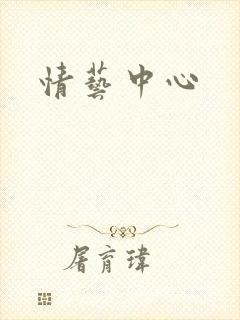 情藝中心
屠育瑋